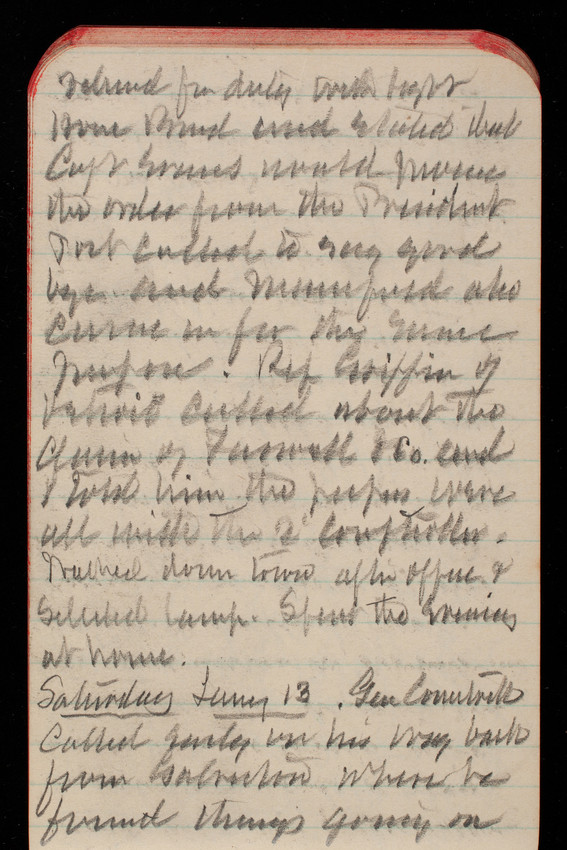 relieved for duty took
House Bound and stated that
Capt Goines would
the order from the President
Port called to say good
bye and Mumford also
came in for the same
purpose. Rep Griffin of
Detroit called about the
Claim of Farwell & Co. and
I told him the papers were
all with the 2^d Comptroller.
Walked down town after office &
selected lamp. Spent the evening
at home.
Saturday Jany 13. Gen Comstock
called early on his way back
from Galveston where he
found things going on